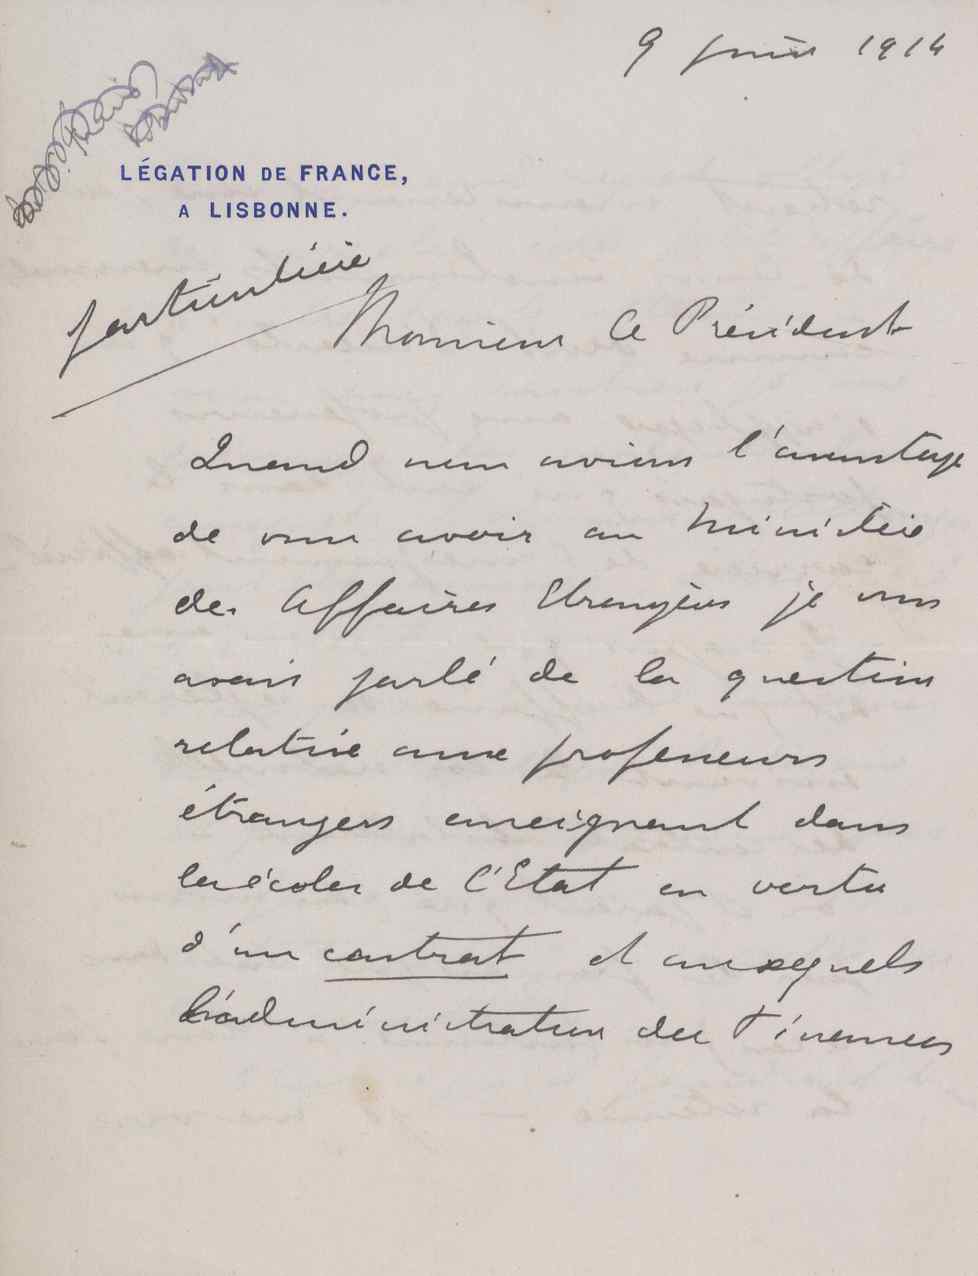 9 juin 1914
LÉGATION DE FRANCE,
A LISBONNE.
particulière
Monsieur le Président
Quand nous avions l'avantage
de vous avoir au Ministère
des Affaires Etrangères je vous
avais parlé de la question
relative aux professeurs
étrangers enseignant dans
les écoles de l'Etat en vertu
d'un contrat et auxquels
l'administration des Finances